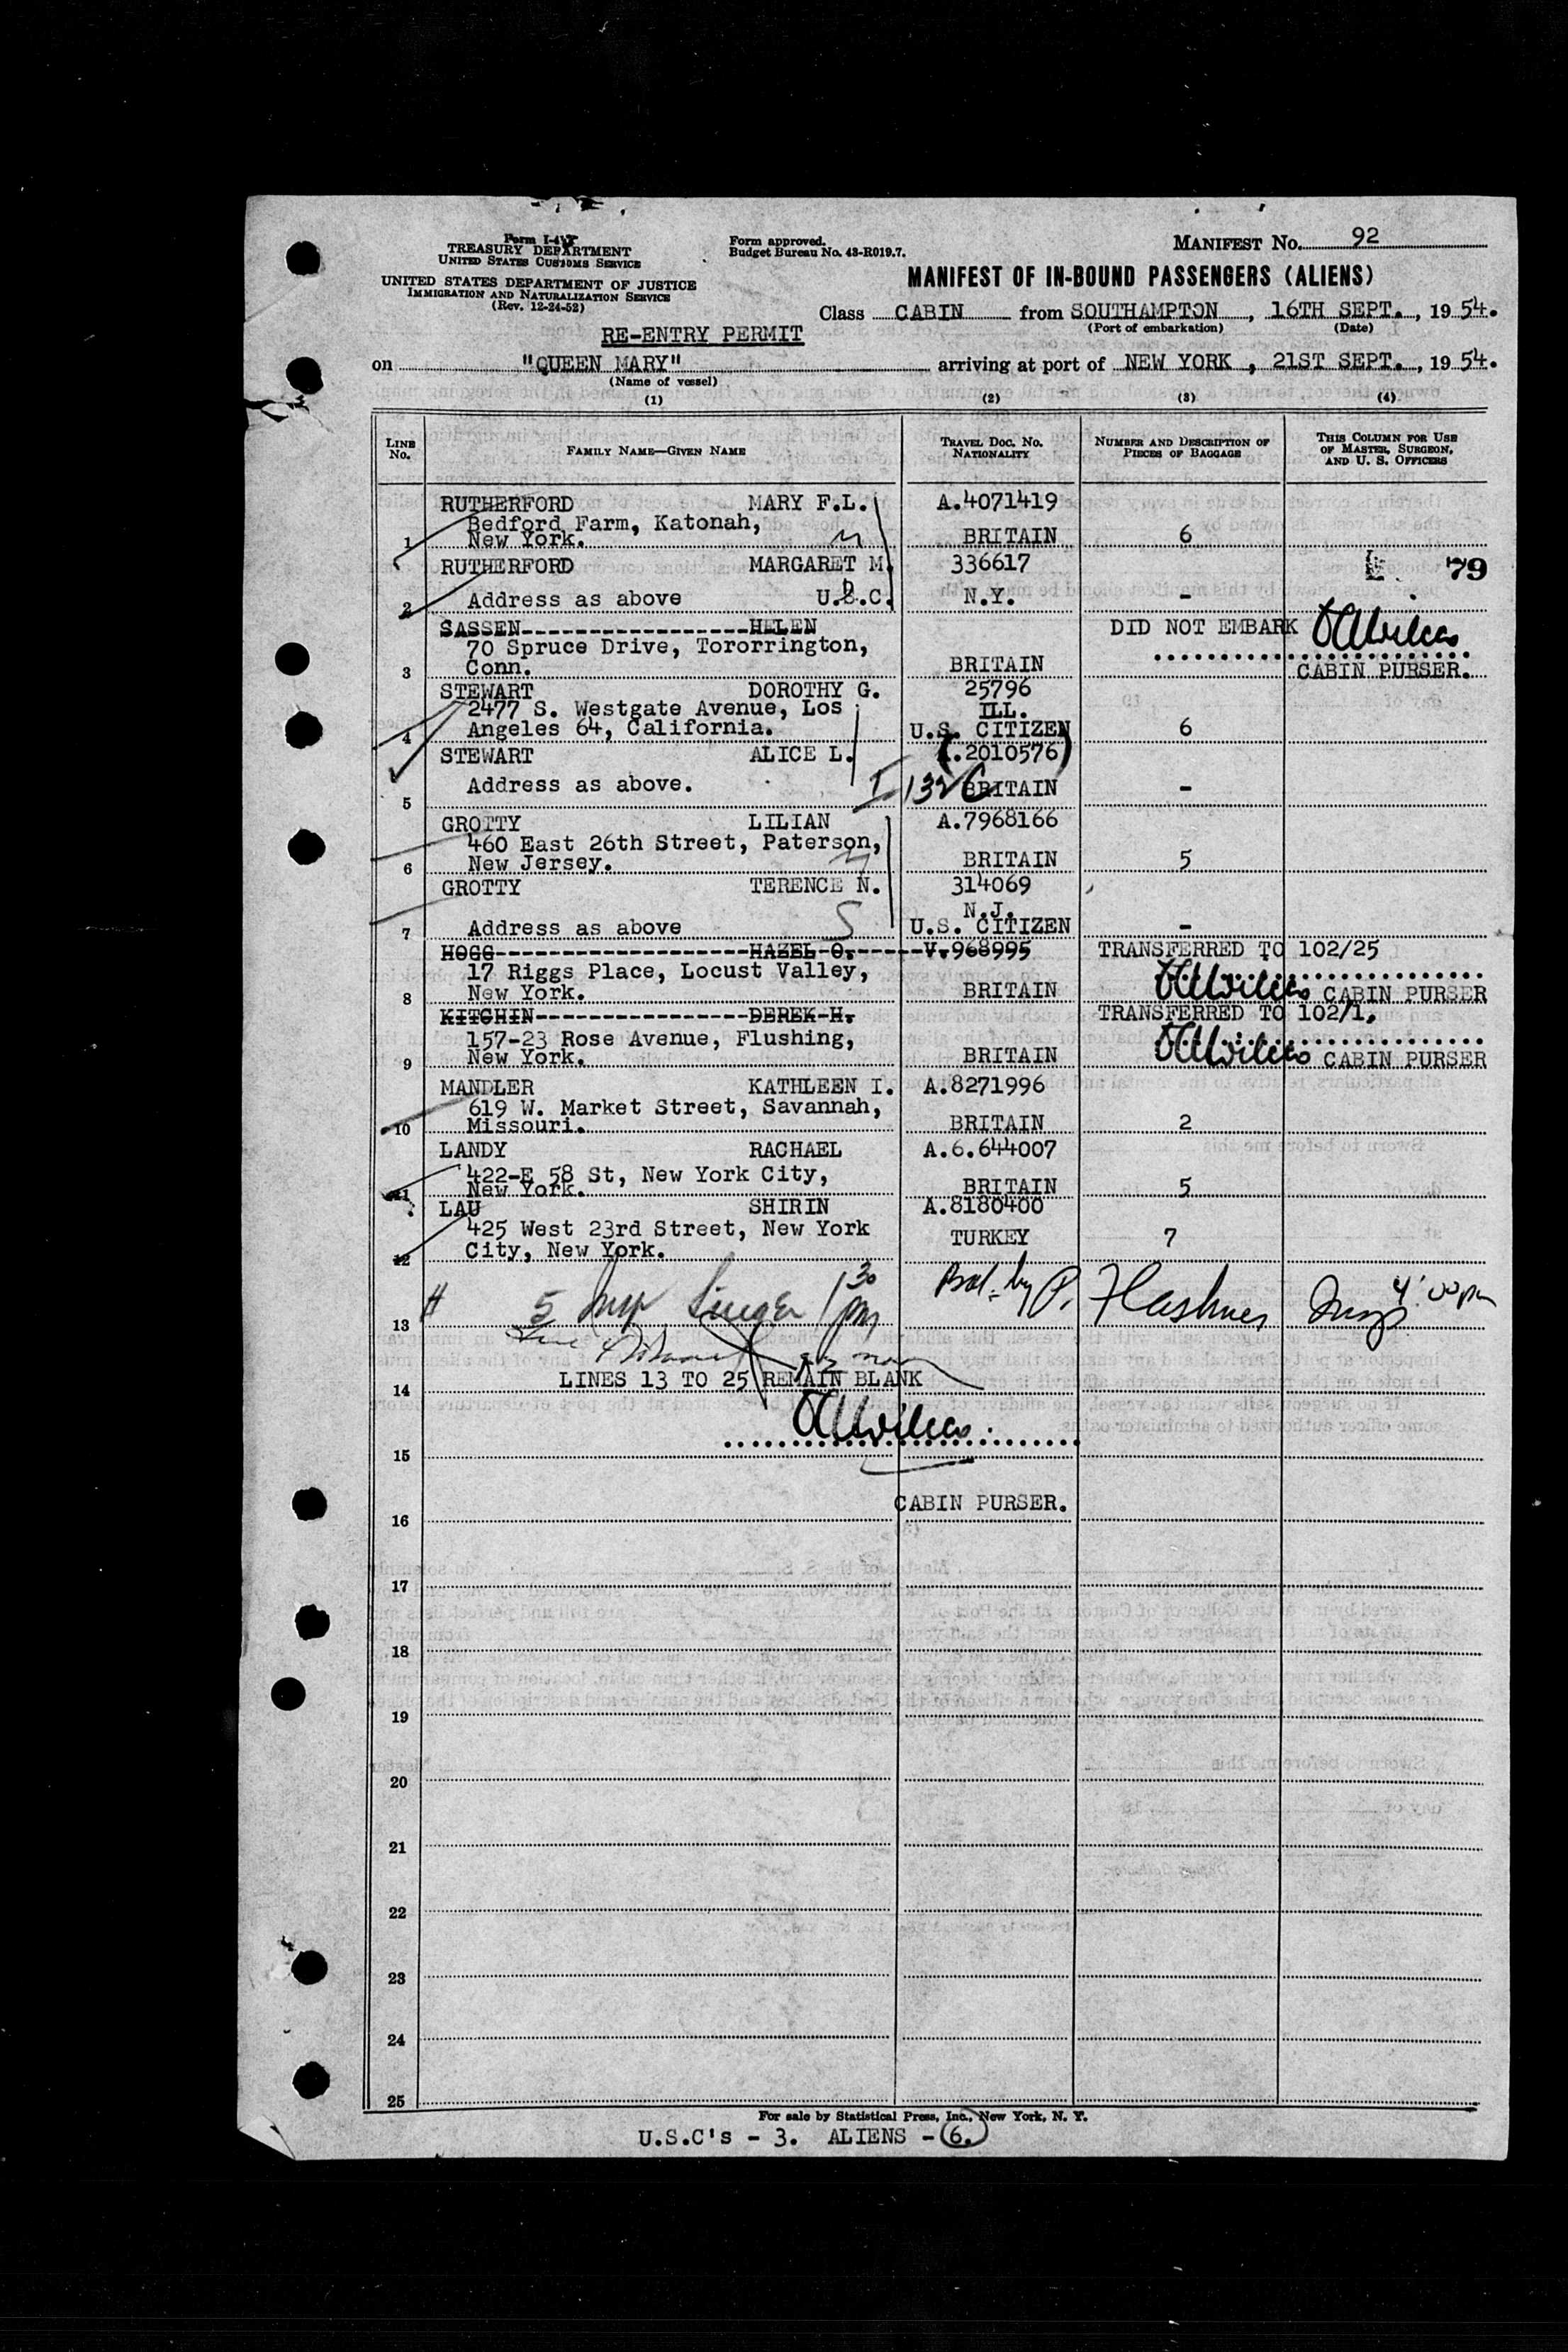 Form I-417
TREASURY DEPARTMENT
UNITED STATES CUSTOMS SERVICE
UNITED STATES DEPARTMENT OF JUSTICE
IMMIGRATION AND NATURALIZATION SERVICE
(Rev. 12-24-52)
Form approved.
Budget Bureau No. 43-R019.7.
MANIFEST No. 92
MANIFEST OF IN-BOUND PASSENGERS (ALIENS)
Class CABIN from SOUTHAMPTON, 16TH SEPT., 1954.
(Port of embarkation) (Date)
RE-ENTRY PERMIT
on "QUEEN MARY" arriving at port of NEW YORK, 21ST SEPT., 1954.
(Name of vessel)
(1) (2) (3) (4)
LINE No. FAMILY NAME—GIVEN NAME TRAVEL DOC. No. NATIONALITY NUMBER AND DESCRIPTION OF PIECES OF BAGGAGE THIS COLUMN FOR USE OF MASTER, SURGEON, AND U. S. OFFICERS
RUTHERFORD MARY F.L. A.4071419
Bedford Farm, Katonah,
1 New York. M BRITAIN 6
RUTHERFORD MARGARET M. 336617 79
2 Address as above U.S.C. N.Y. -
SASSEN------------------HELEN DID NOT EMBARK
70 Spruce Drive, Tororrington,
3 Conn. BRITAIN CABIN PURSER.
STEWART DOROTHY G. 25796
2477 S. Westgate Avenue, Los ILL.
4 Angeles 64, California. U.S. CITIZEN 6
STEWART ALICE L. (A.2010576)
Address as above. I 132 C BRITAIN -
5
GROTTY LILIAN A.7968166
460 East 26th Street, Paterson,
6 New Jersey. M BRITAIN 5
GROTTY TERENCE N. 314069
N.J.
7 Address as above S U.S. CITIZEN -
HOGG-------------------HAZEL O.------V.968995 TRANSFERRED TO 102/25
17 Riggs Place, Locust Valley,
8 New York. BRITAIN CABIN PURSER
KITCHIN----------------DEREK H. TRANSFERRED TO 102/1,
157-23 Rose Avenue, Flushing,
9 New York. BRITAIN CABIN PURSER
MANDLER KATHLEEN I. A.8271996
619 W. Market Street, Savannah,
10 Missouri. BRITAIN 2
LANDY RACHAEL A.6.644007
422-E 58 St, New York City,
11 New York. BRITAIN 5
LAU SHIRIN A.8180400
425 West 23rd Street, New York TURKEY 7
12 City, New York.
5 Insp Singer 1 30 pm by P. Flashner Insp 4:00 pm
13
LINES 13 TO 25 REMAIN BLANK
14
15
CABIN PURSER.
16
17
18
19
20
21
22
23
24
25
For sale by Statistical Press, Inc., New York, N. Y.
U.S.C's - 3. ALIENS - 6.